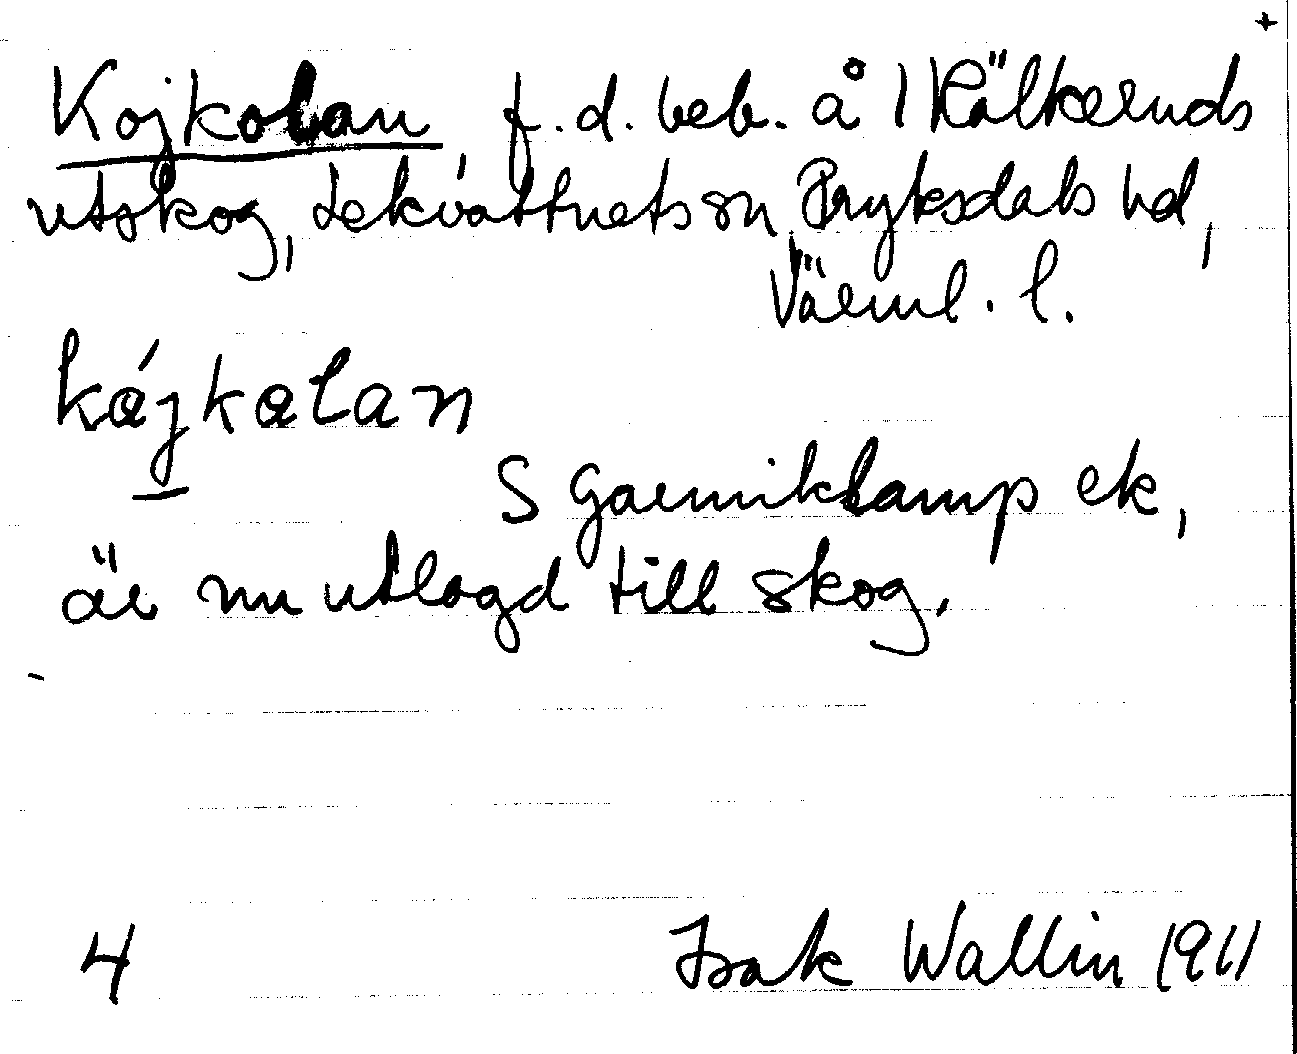 +
Kojkolan, f.d. beb. å 1 Kälkeruds
utskog, Lekvattnets sn, Fryksdals hd,
Värml. l.
kájkolan
S Garniklamp ek,
är nu utlagd till skog.
4 Isak Wallin 1911